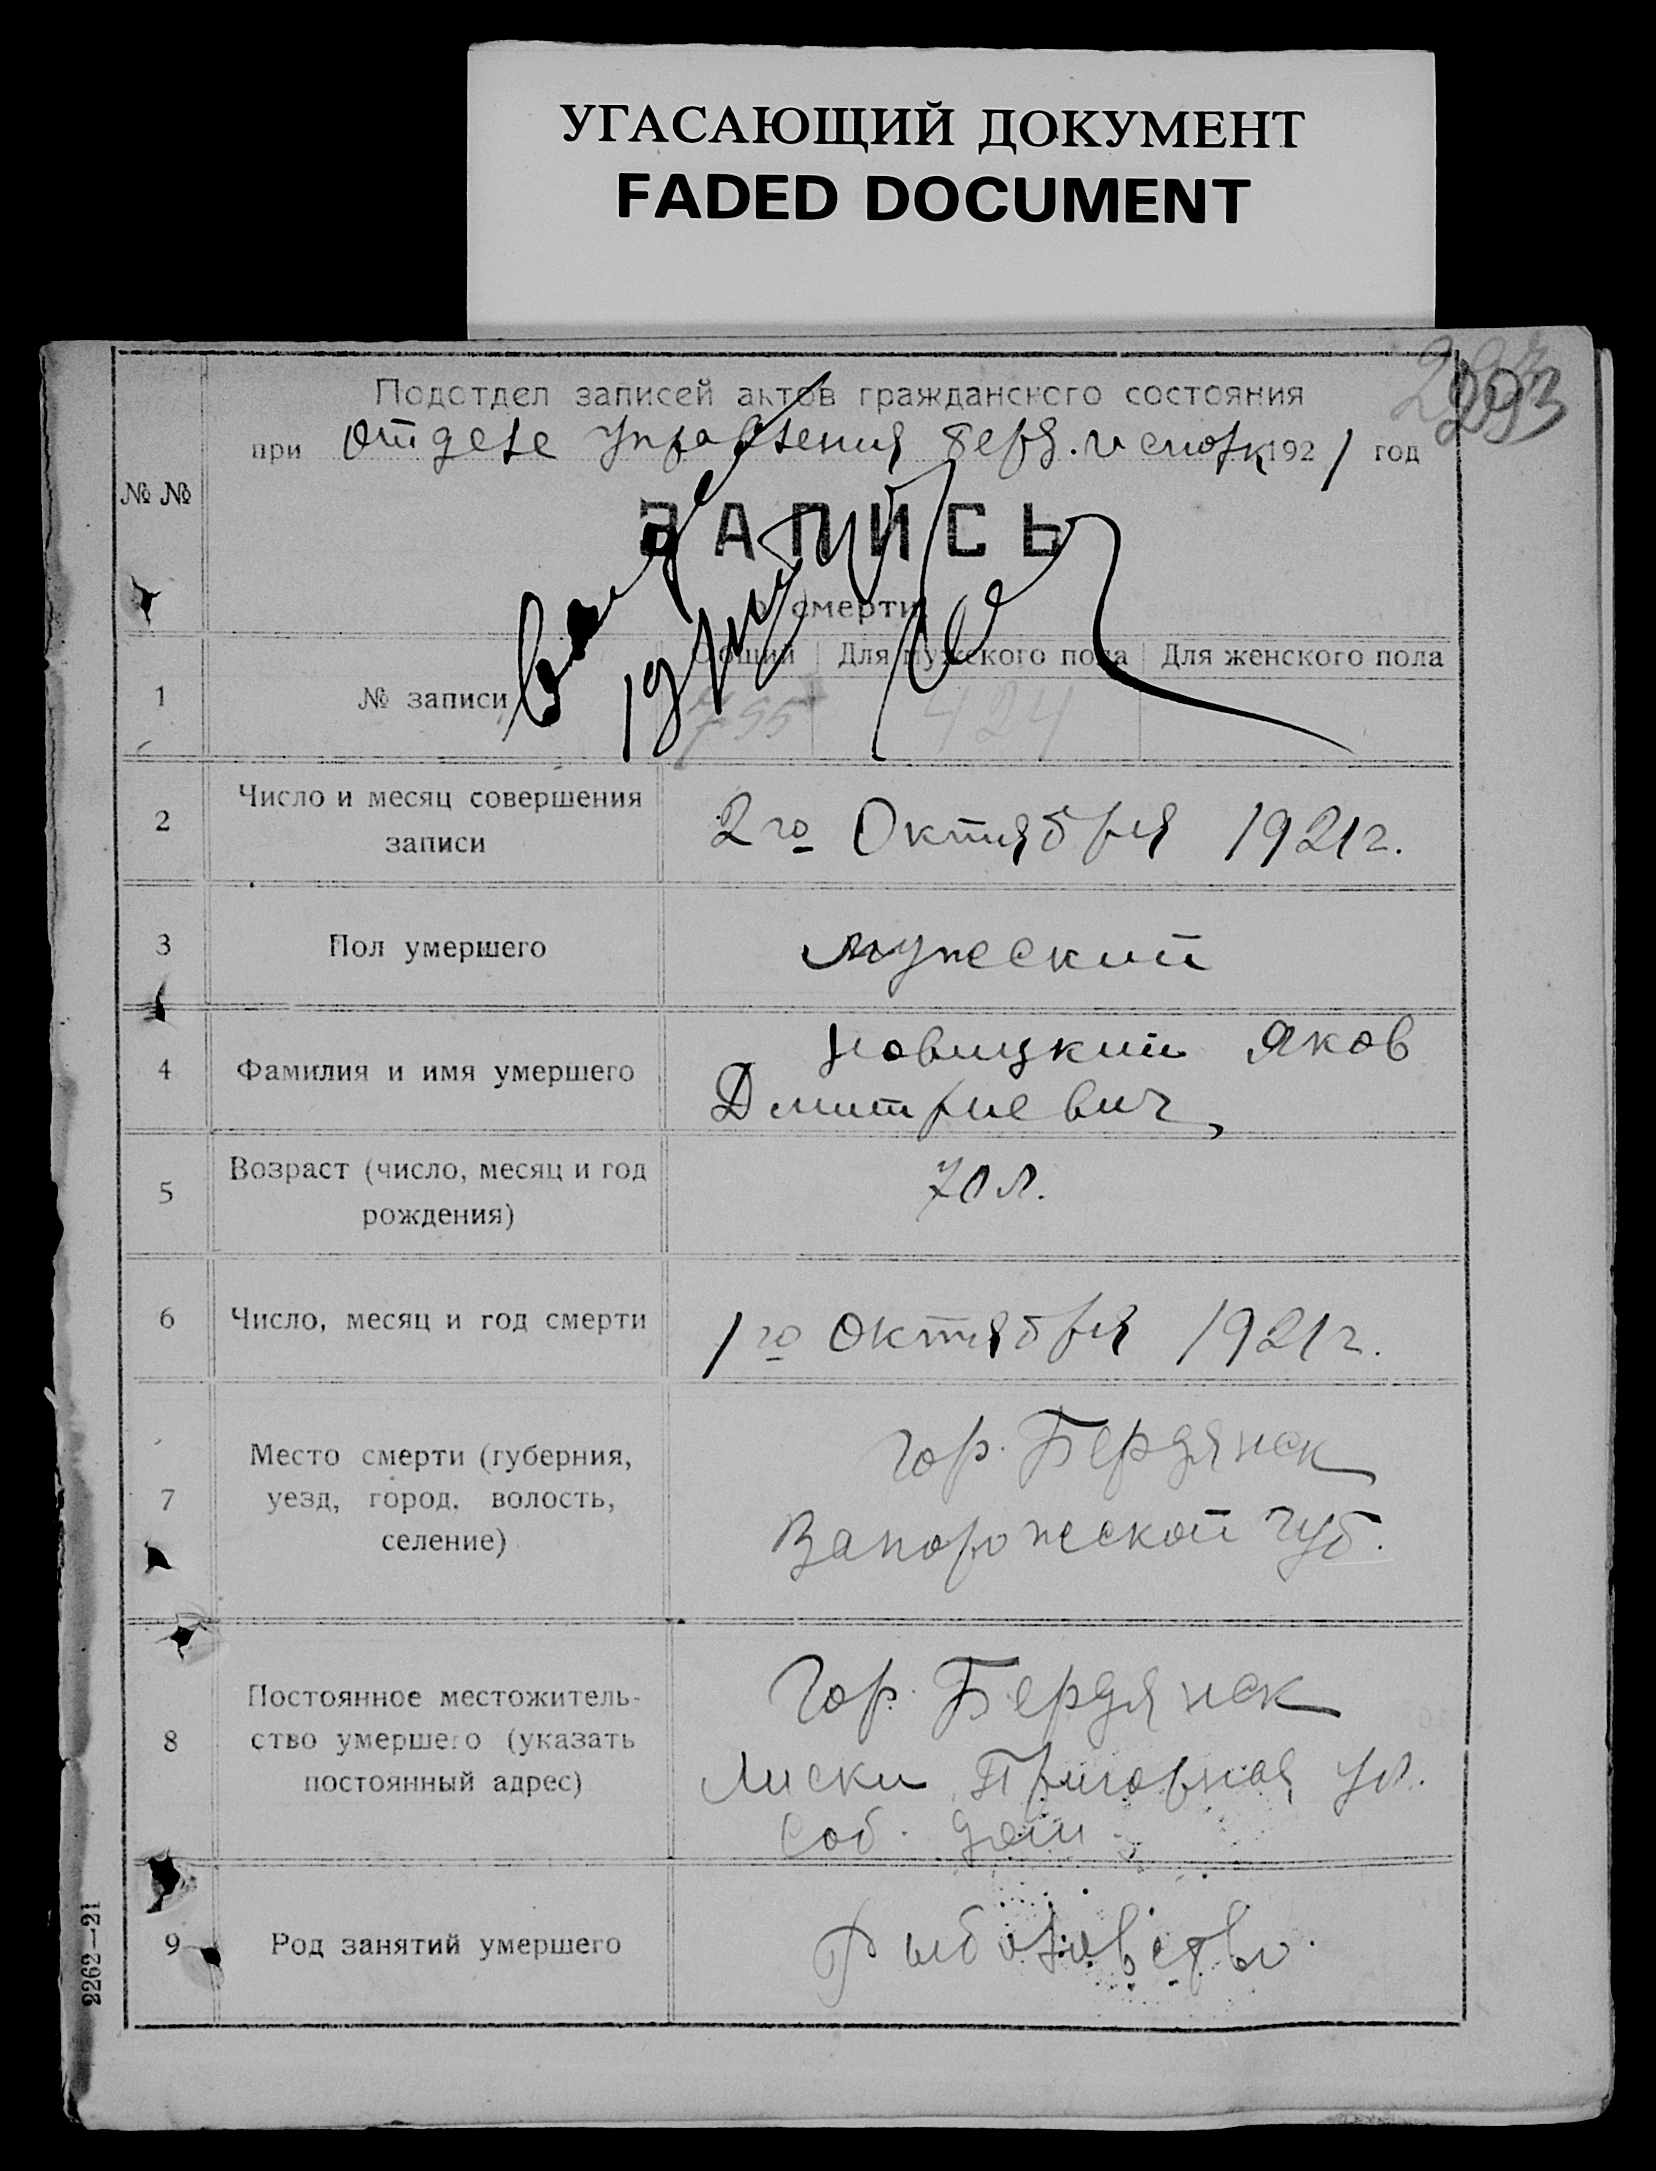 УГАСАЮЩИЙ ДОКУМЕНТ
FADED DOCUMENT
293
Подотдел записей актов гражданского состояния
при отделе управления Берд. исполк 1921 год
№ №
ЗАПИСЬ
о смерти
Общий Для мужского пола Для женского пола
1 № записи 755 424
2 Число и месяц совершения
записи
2го Октября 1921г.
3 Пол умершего мужеский
4 Фамилия и имя умершего
Новицкий Яков
Дмитриевич,
5 Возраст (число, месяц и год
рождения)
70 л.
6 Число, месяц и год смерти 1го октября 1921г.
7 Место смерти (губерния,
уезд, город, волость,
селение)
гор. Бердянск
Запорожской губ.
8 Постоянное местожитель-
ство умершего (указать
постоянный адрес)
Гор. Бердянск
Лиски Пригорная ул.
Соб. дом
9 Род занятий умершего Рыболовство.
2262—21